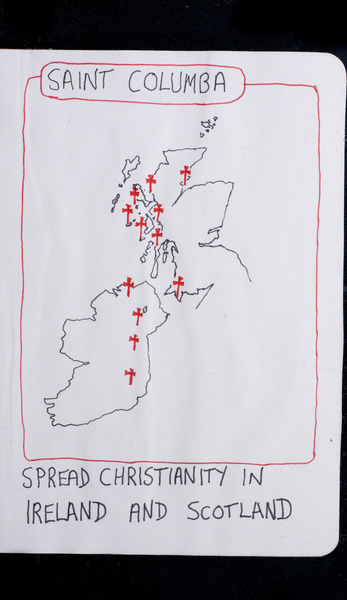 SAINT COLUMBA
SPREAD CHRISTIANITY IN
IRELAND AND SCOTLAND